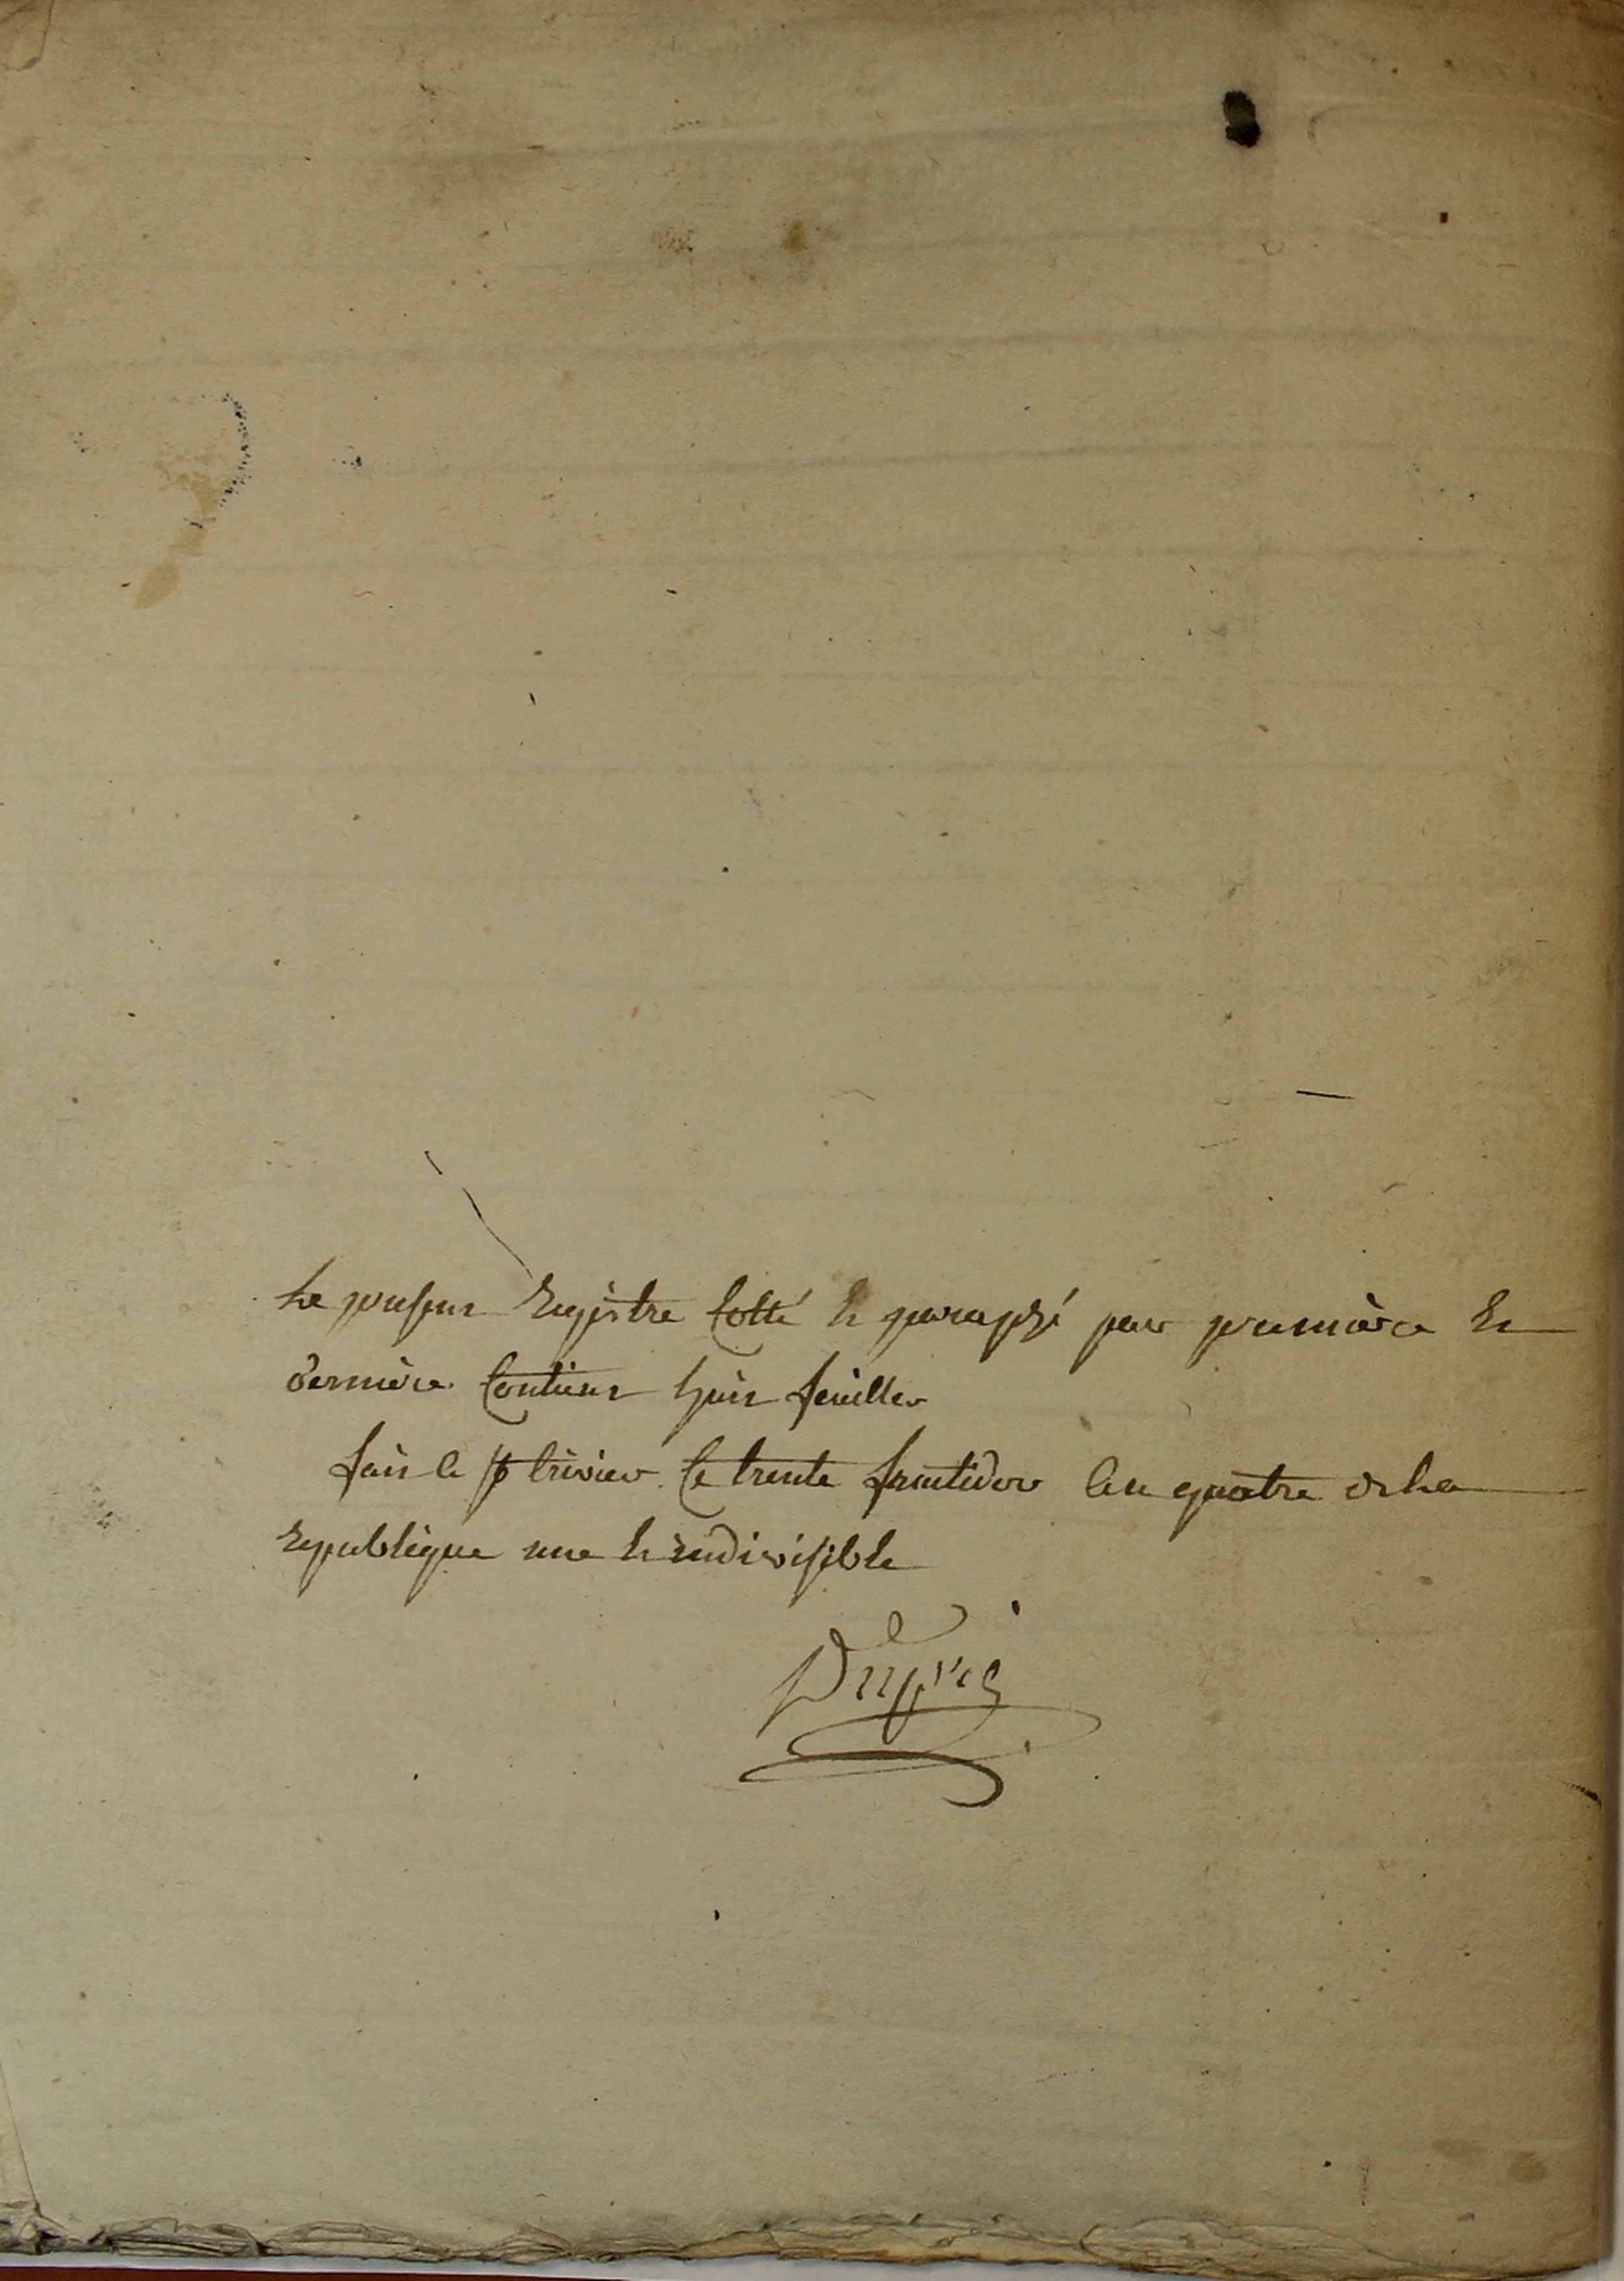 Le present Registre Cotté et paraphé par premiere et
derniere Contient huit feuilles
fait a St trivier Ce trente fructidor l'an quatre de la
Republique une et indivisible
Dupré